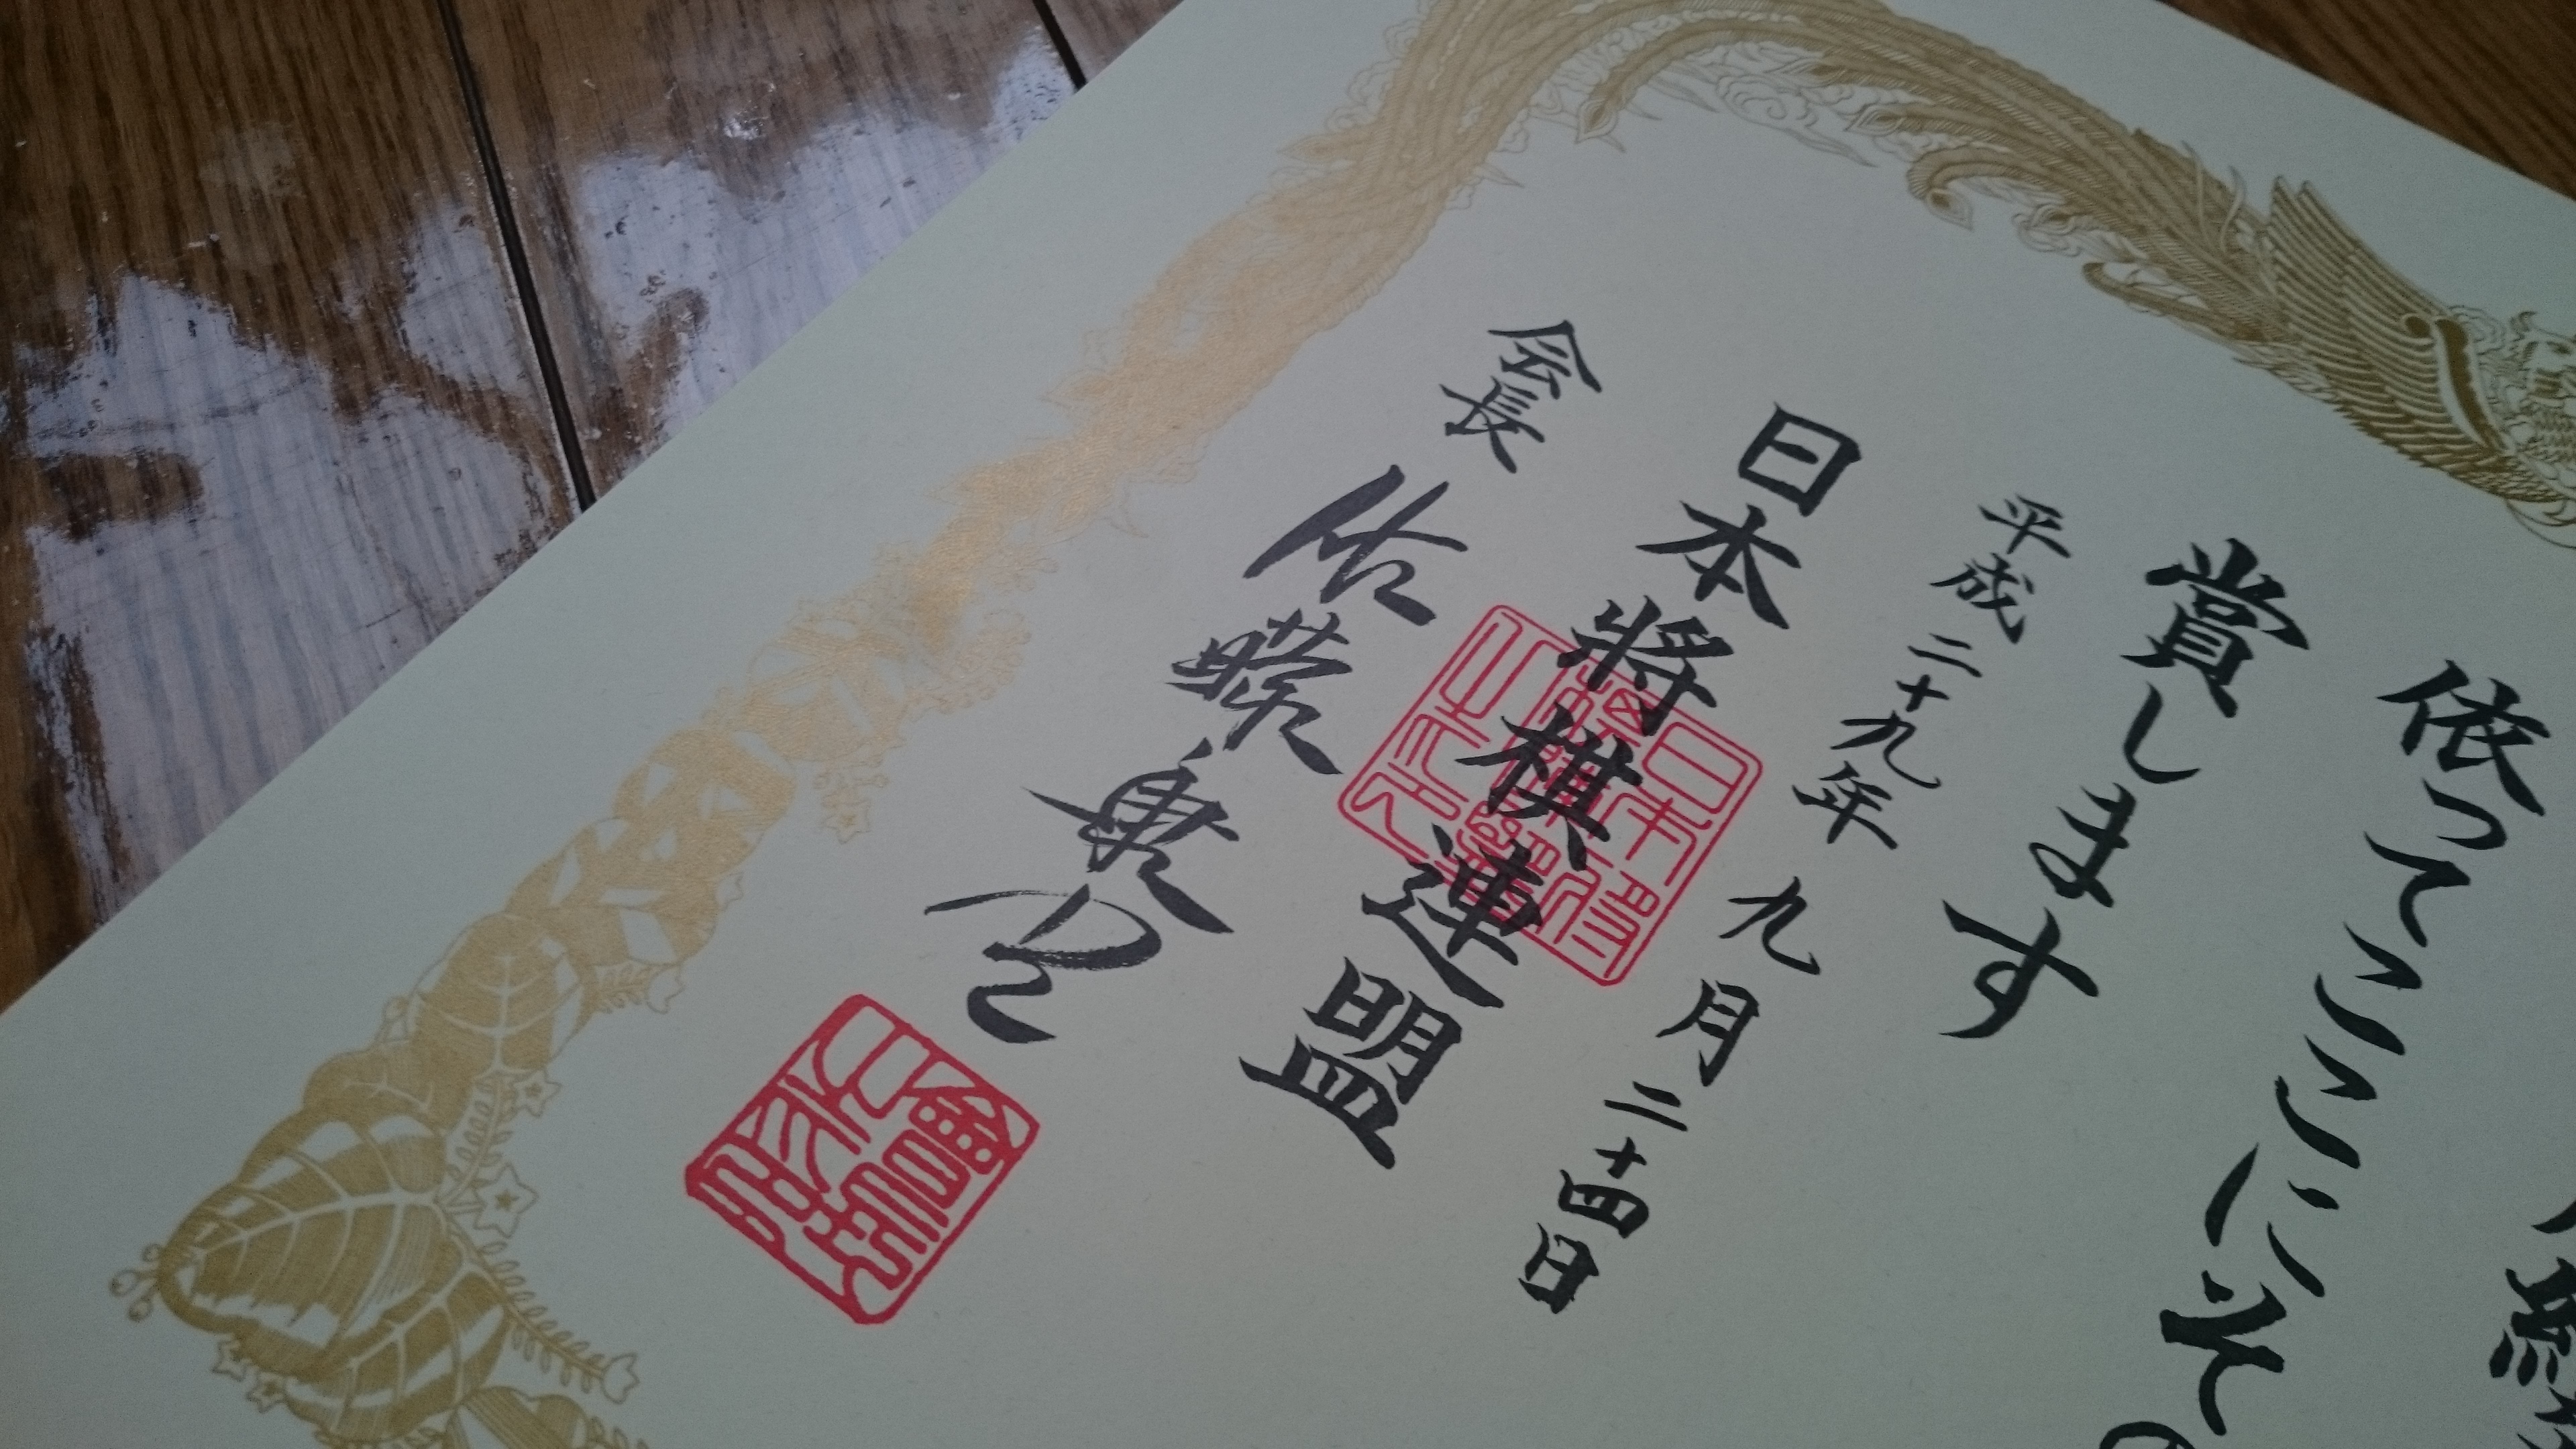 依ってここにその
賞します
平成二十九年九月二十四日
日本將棋連盟
会長 佐藤康光